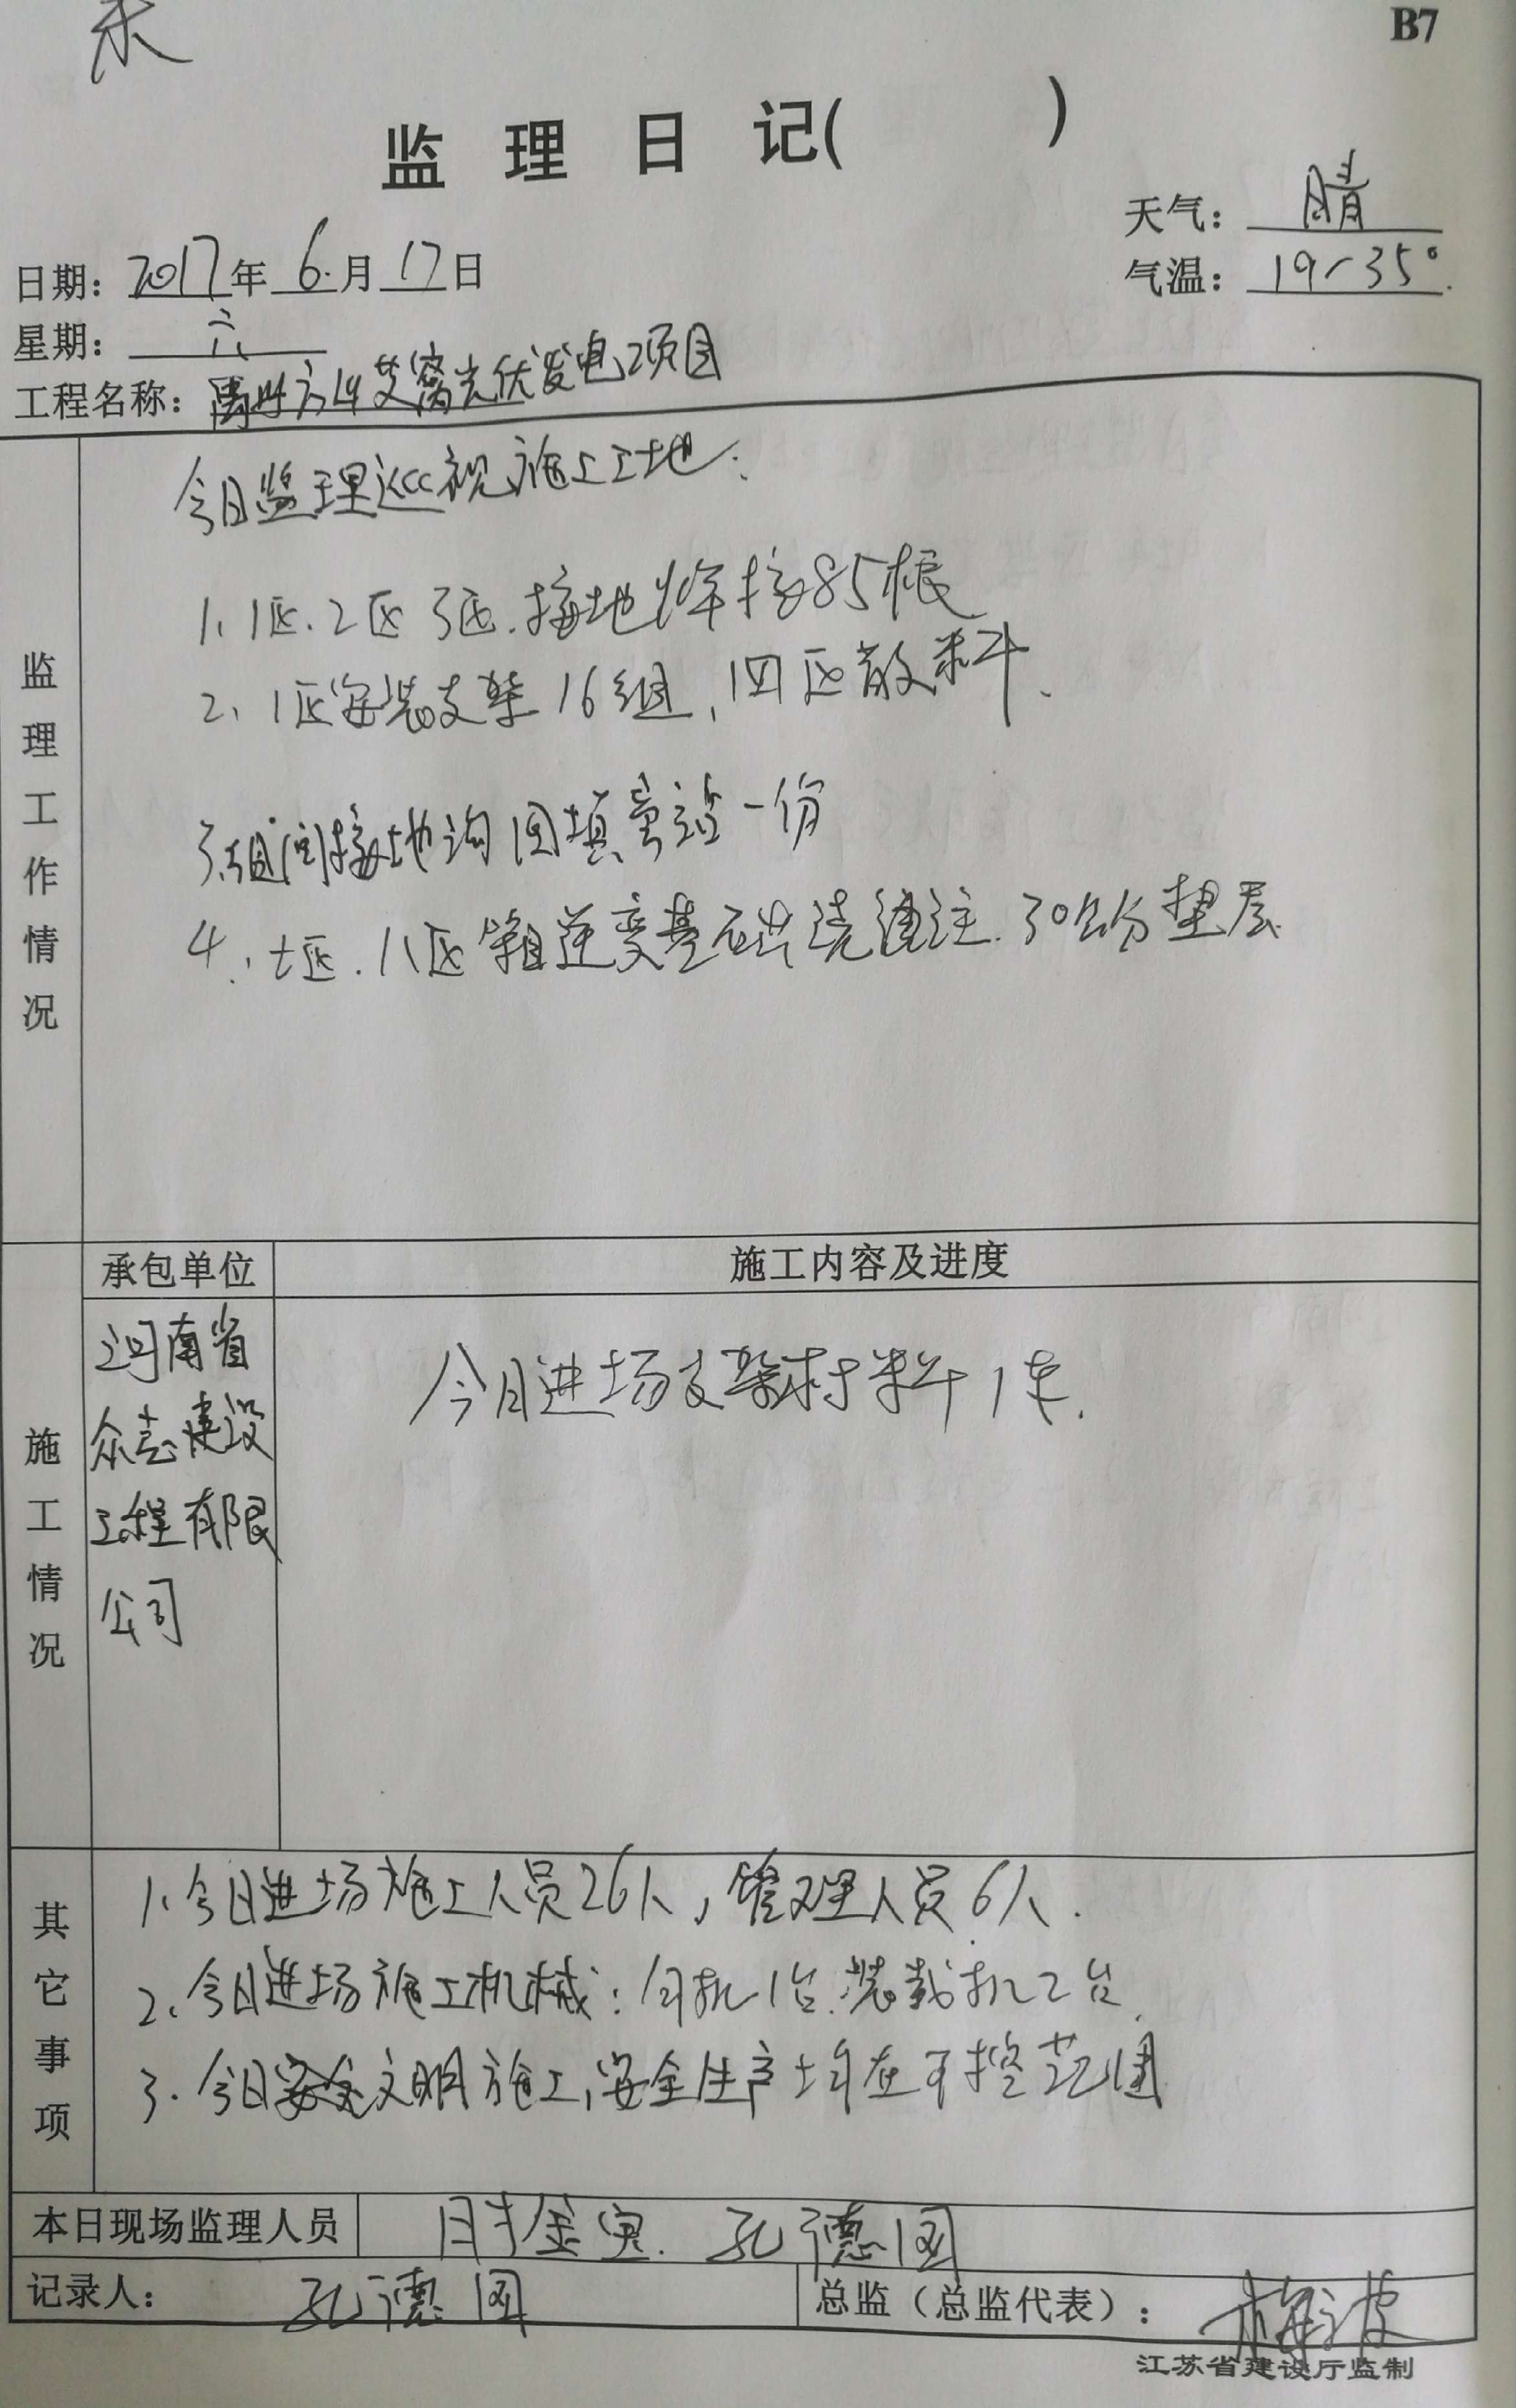 B7
监理日记( )
天气: 晴
日期: 2017年 6月 17日
气温: 19~35°
星期: 六
工程名称: 禹州方山艾窝光伏发电项目
监理工作情况
今日监理巡视施工工地:
1、1区.2区 3区.接地焊接85根
2、1区安装支架16组,四区散料.
3.组间接地沟回填 一份
4、七区.八区箱逆变基础浇 注.30公分垫层
承包单位
施工内容及进度
施工情况
河南省
众志建设
工程有限
公司
今日进场支架材料1车.
其它事项
1、今日进场施工人员26人,管理人员6人.
2、今日进场施工机械:勾机1台.装载机2台.
3.今日安全文明施工,安全生产均在可控范围
本日现场监理人员
金 . 孔德国
记录人: 孔德国
总监(总监代表): 梅波
江苏省建设厅监制